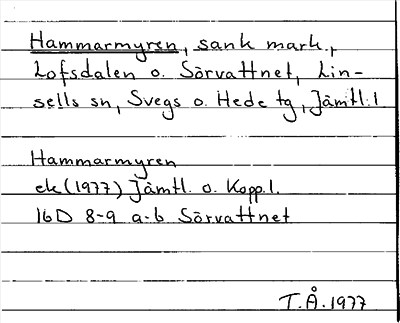 Hammarmyren, sank mark,
Lofsdalen o. Sörvattnet, Lin-
sells sn, Svegs o. Hede tg, Jämtl. l
Hammarmyren
ek (1977) Jämtl. o. Kopp. l.
16D 8-9 a-b Sörvattnet
T.Å. 1977